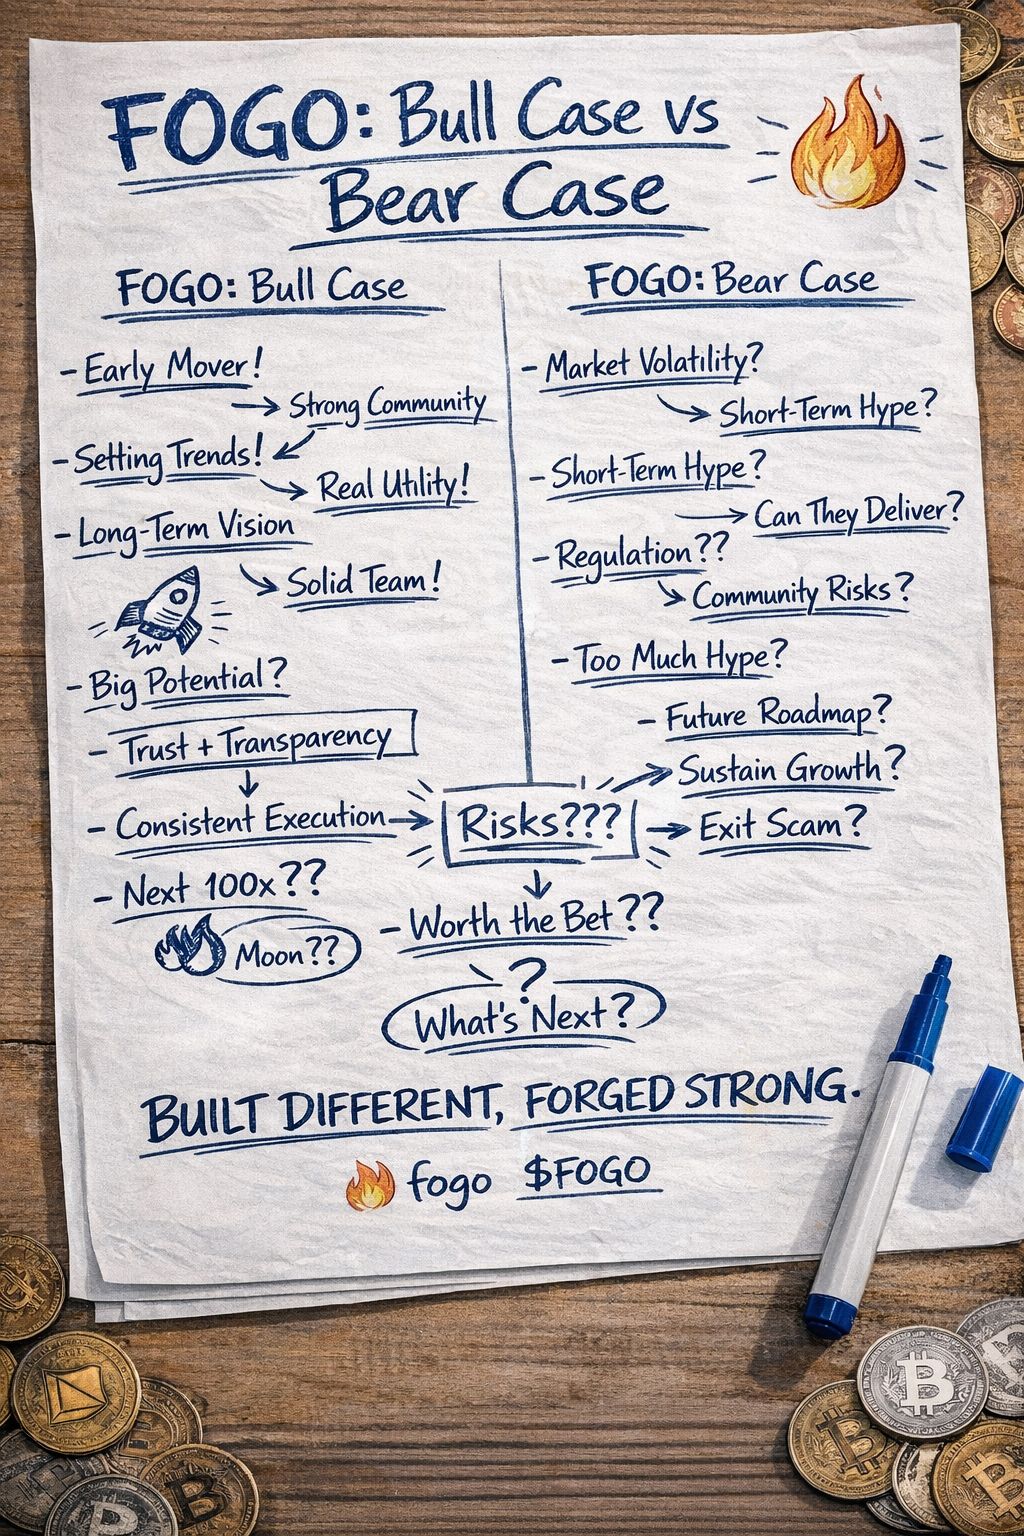 FOGO: Bull Case vs
Bear Case
FOGO: Bull Case
- Early Mover!
→ Strong Community
- Setting Trends!
Real Utility!
- Long-Term Vision
Solid Team!
- Big Potential?
- Trust + Transparency
- Consistent Execution
- Next 100x??
Moon??
FOGO: Bear Case
- Market Volatility?
Short-Term Hype?
- Short-Term Hype?
→ Can They Deliver?
- Regulation??
Community Risks?
- Too Much Hype?
- Future Roadmap?
Sustain Growth?
Risks???
Exit Scam?
- Worth the Bet??
?
What's Next?
BUILT DIFFERENT, FORGED STRONG.
fogo $FOGO